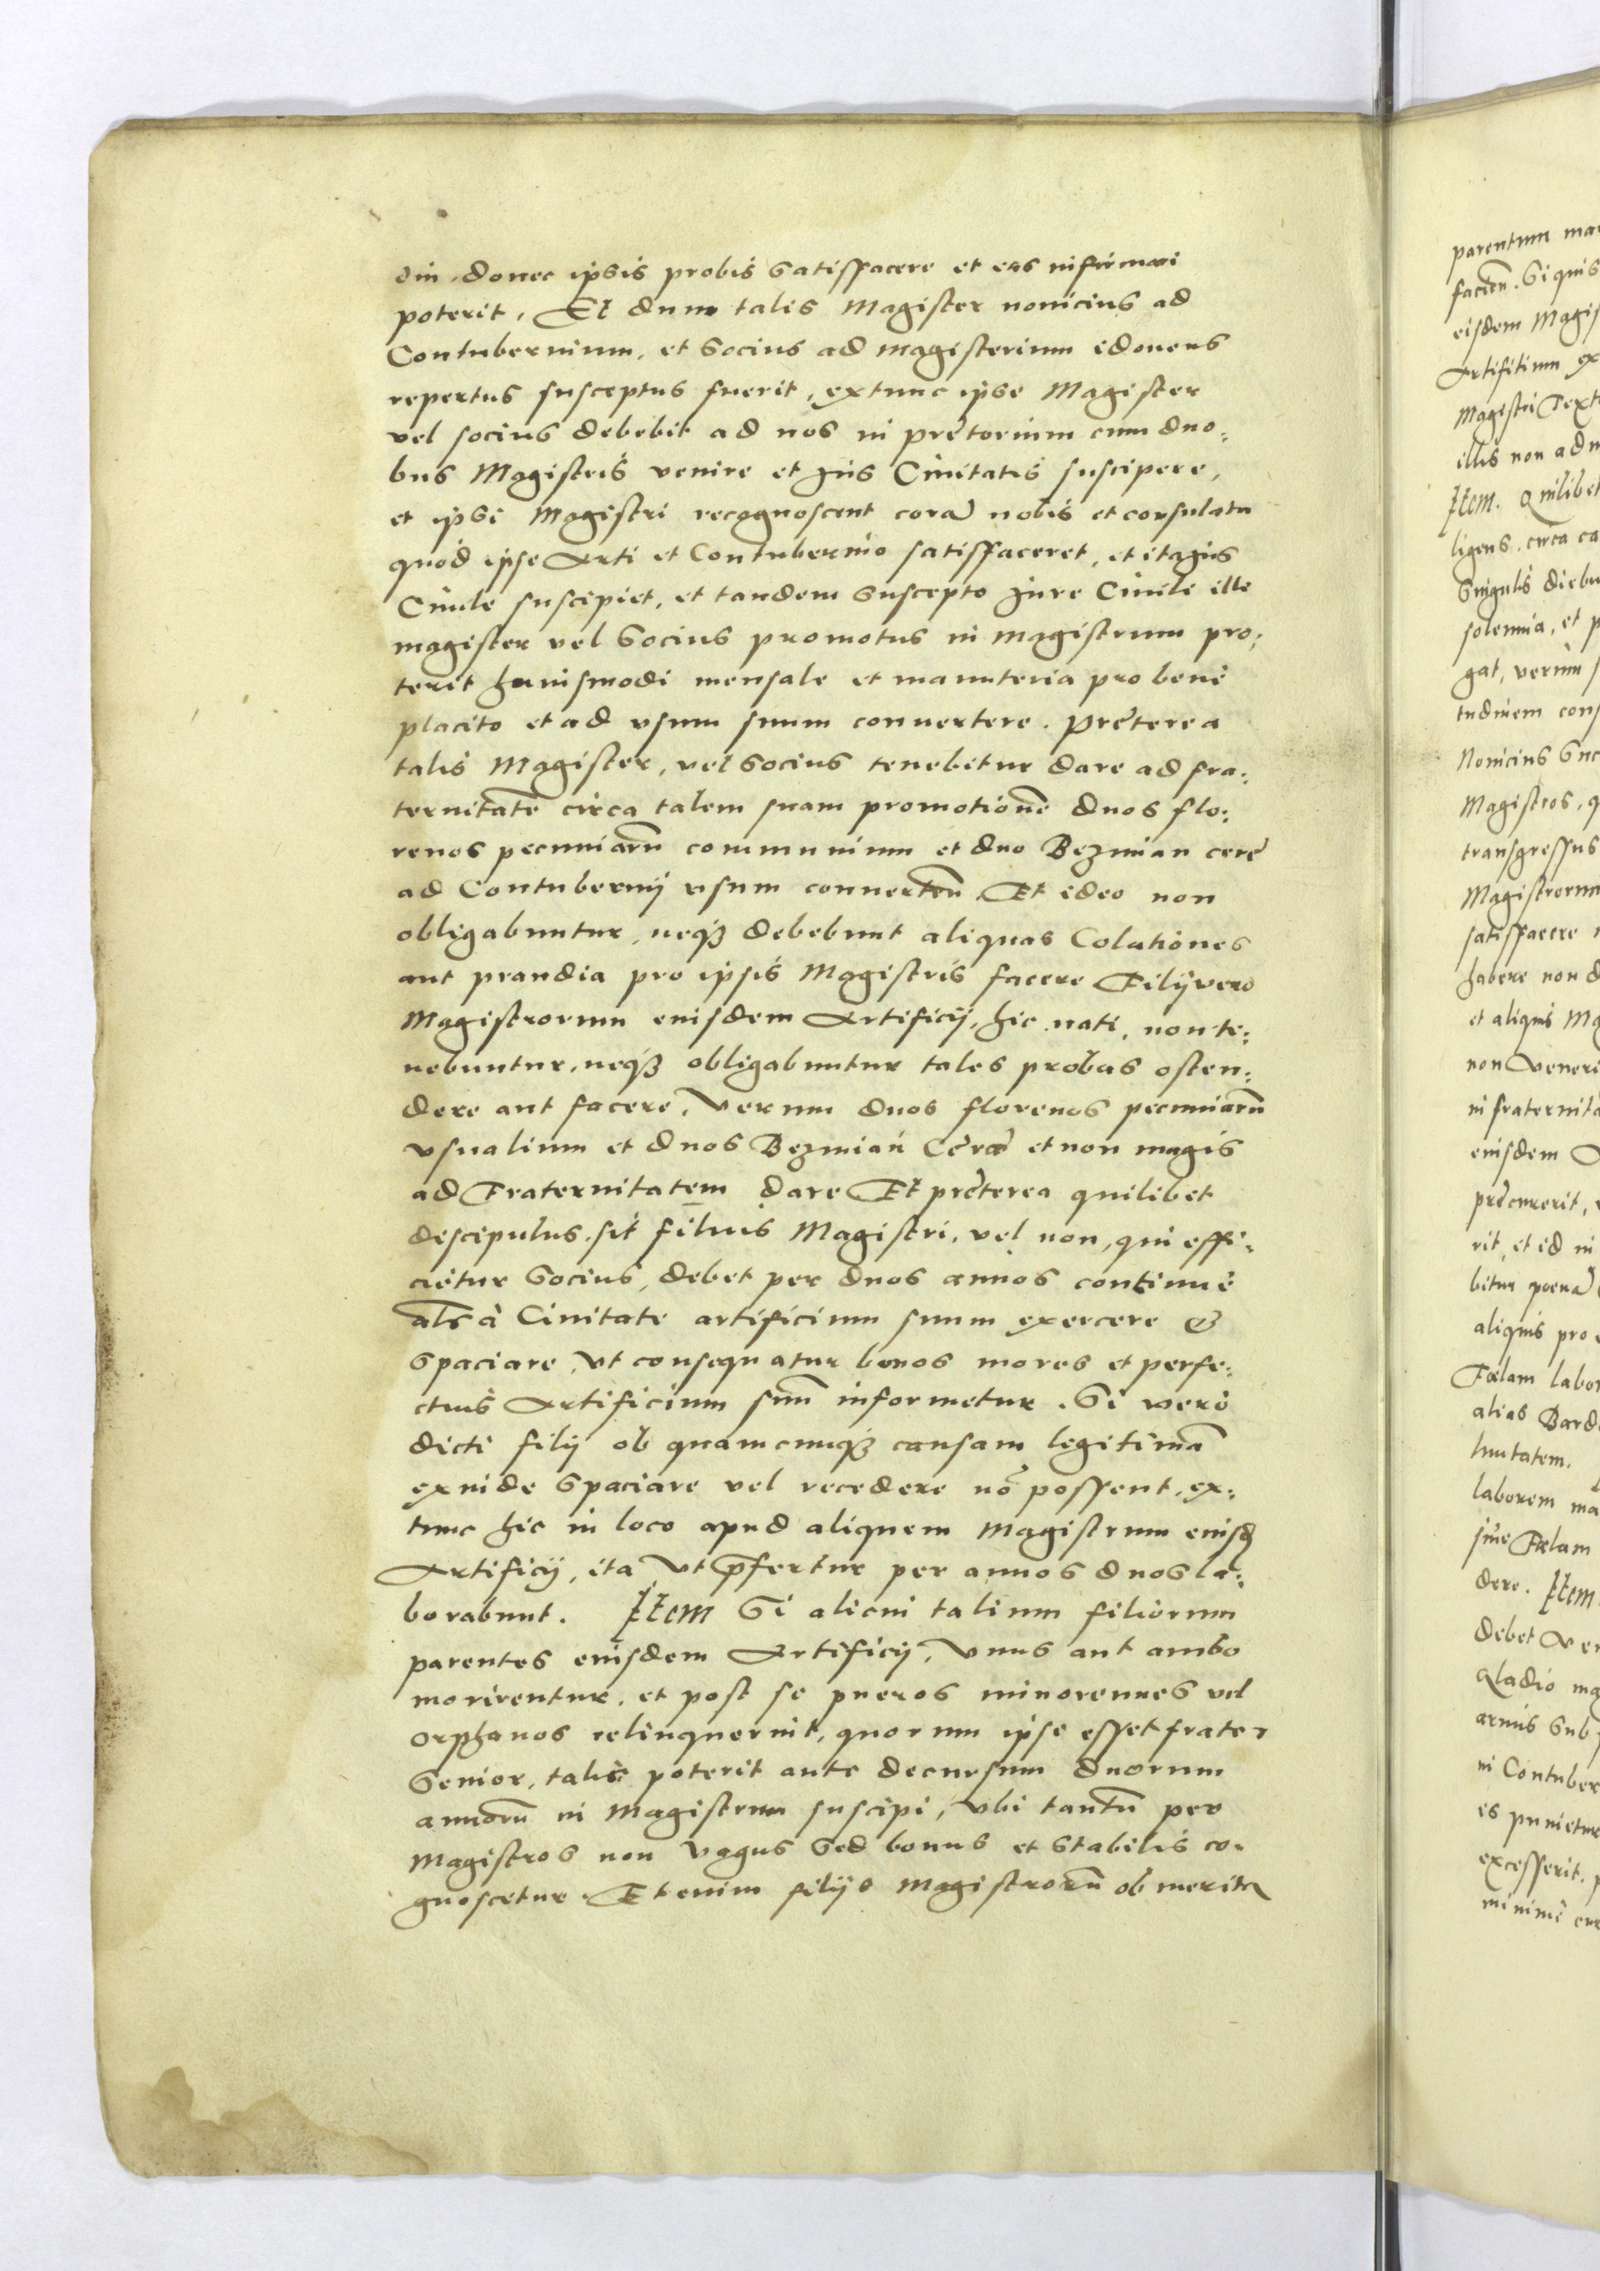 diu, donec ipsis probis satisfacere et eas infirmari
poterit, Et dum talis Magister nouicius ad
Contubernium, et Socius ad magisterium idoneus
repertus susceptus fuerit, extunc ipse Magister
vel socius debebit ad nos in pretorium cum duo:
bus Magistris venire et Jus Ciuitatis suscipere,
et ipsi Magistri recognoscent corã nobis et consulatu
quod ipse Arti et Contubernio satisfaceret, et ita Jus
Ciuile suscipiet, et tandem suscepto Jure Ciuili ille
magister vel Socius promotus in magistrum po:
terit huiusmodi mensale et manuteria pro bene
placito et ad vsum suum conuertere. Preterea
talis Magister, vel Socius tenebitur dare ad fra:
ternitatẽ circa talem suam promotionẽ duos flo:
renos pecuniarũ communium et duo Bezmian cere
ad Contubernij vsum conuerteñ Et ideo non
obligabuntur, neqȝ debebunt aliquas Colationes
aut prandia pro ipsis Magistris facere Filij vero
Magistrorum euisdem Artificij, hic nati, non te:
nebuntur, neqȝ obligabuntur tales probas osten:
dere aut facere, Verum duos florenos pecuniarũ
vsualium et duos Bezmian Ceræ et non magis
ad Fraternitatem dare Et preterea quilibet
discipulus, sit filius Magistri, vel non, qui effi:
cietur Socius, debet per duos annos continue
als à Ciuitate artificium suum exercere &
spaciare, Vt consequatur bonos mores et perfe:
ctius Artificium suũ informetur. Si vero
dicti filij ob quamcunqȝ causam legitimã
exinde spaciare vel recedere nõ possent, ex:
tunc hic in loco apud aliquem Magistrum eiusd
Artificij, ita Vt p̃fertur per annos duos la:
borabunt. Item Si alicui talium filiorum
parentes euisdem Artificij, Vnus aut ambo
morirentur, et post se pueros minorennes vel
orphanos relinquerint, quorum ipse esset frater
Senior, talis poterit ante decursum duorum
annorũ in Magistrum suscipi, Vbi tantũ per
Magistros non Vagus sed bonus et stabilis co:
gnoscetur. Etenim filijs Magistrorũ ob merita
parentum
facien. Si quis
eisdem Magis
Artificium ex
Magistri Text
illis non adm
Item. Quilibet
ligens, circa ca
Singulis diebu
solennia, et p
gat, verum s
tudinem cons
Nouicius
Magistros, q
transgressus
Magistrorum
satisfacere
habere non d
et aliquis Ma
non Veneri
in fraternita
euisdem
precurerit, v
rit, et id in
bitur poena
aliquis pro
Telam labor
alias Bard
laborem ma
siue Telam
dere. Item
debet Ve
Gladio ma
armis Sub
in Contuber
es punietur
excesserit.
minime